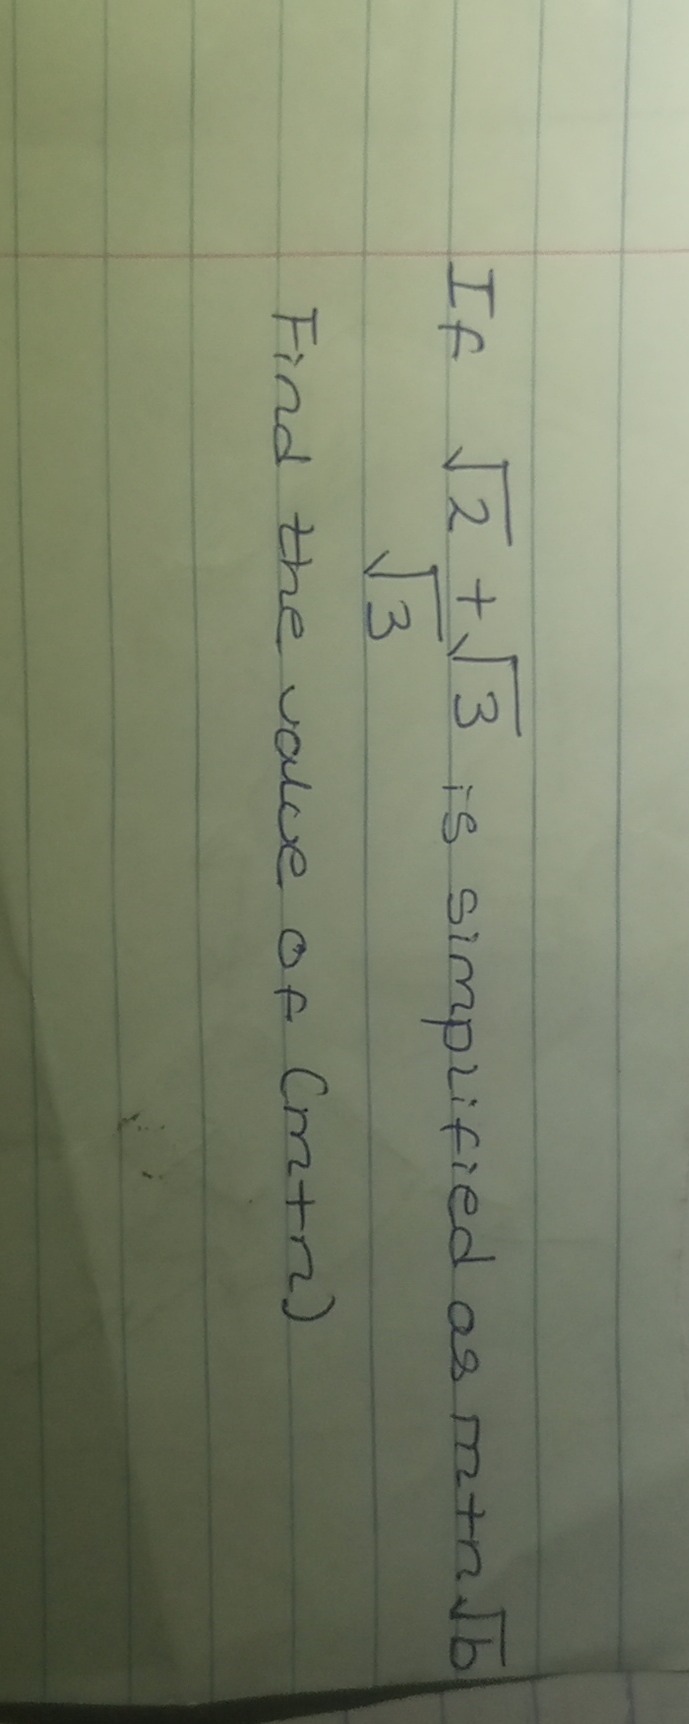 If √2 + √3 is simplified as m+n√b
√3
Find the value of (m+n)